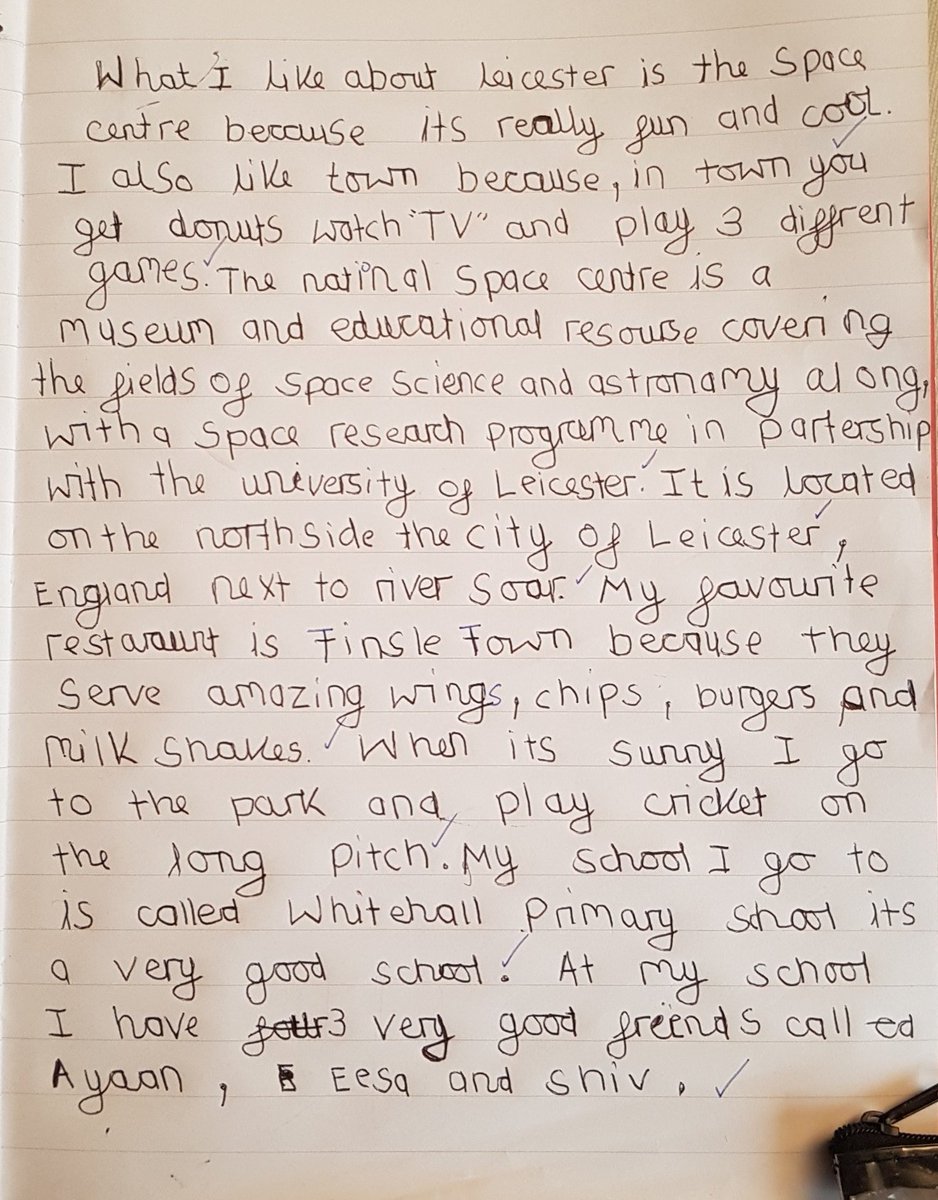 What I like about Leicester is the Space
centre because its really fun and cool.
I also like town because, in town you
get donuts watch "TV" and play 3 diffrent
games. The natinal Space centre is a
museum and educational resouse covering
the fields of Space Science and astronamy along,
with a Space research programme in partership
with the university of Leicester. It is located
on the north side the city of Leicester,
England next to river Soar. My favourite
restaraunt is Tinsle Town because they
Serve amazing wings, chips, burgers and
milk shakes. When its sunny I go
to the park and play cricket on
the long pitch. My school I go to
is called Whitehall Primary shool its
a very good school. At my school
I have four 3 very good freinds called
Ayaan, E Eesa and shiv.